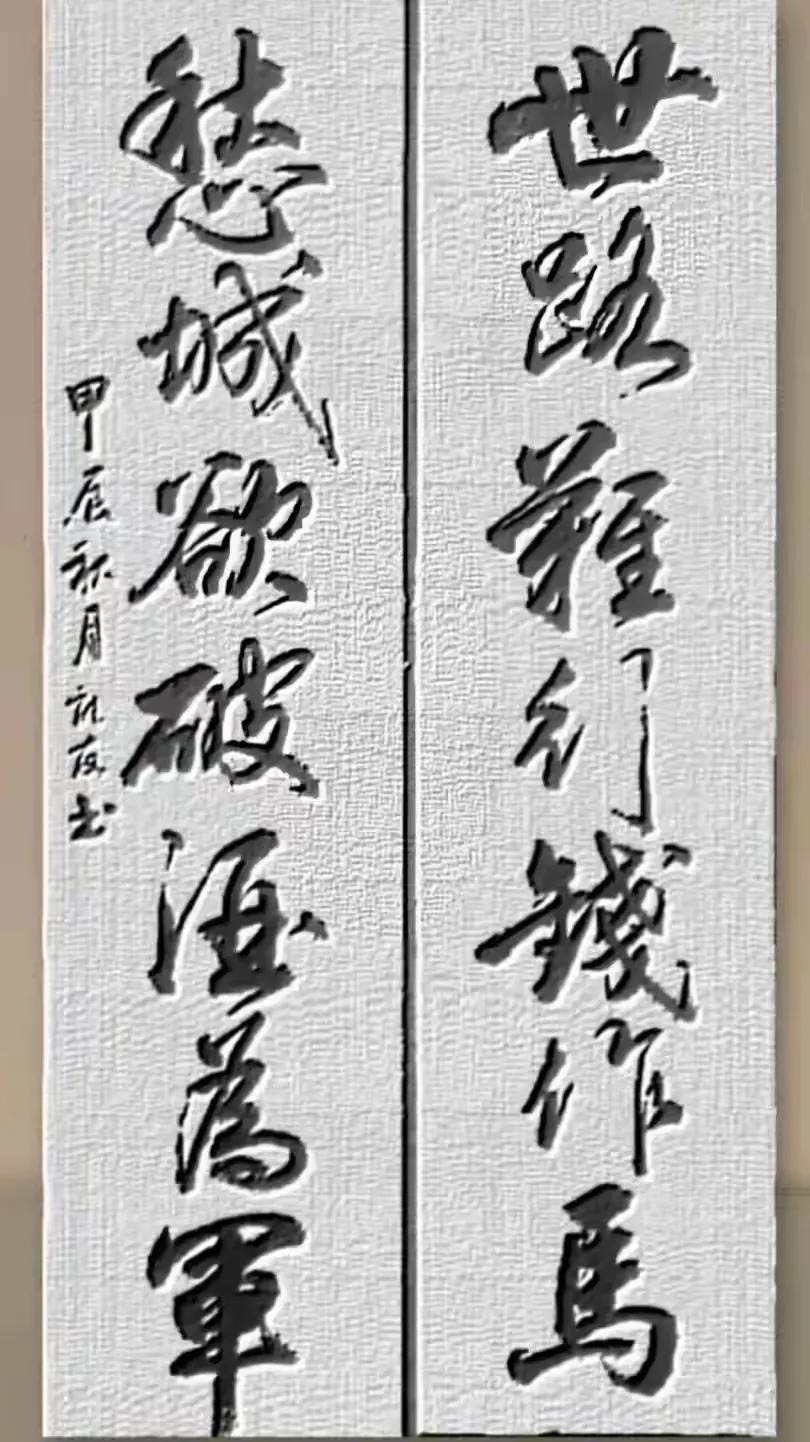 世路難行錢作馬
愁城欲破酒為軍
甲辰秋月